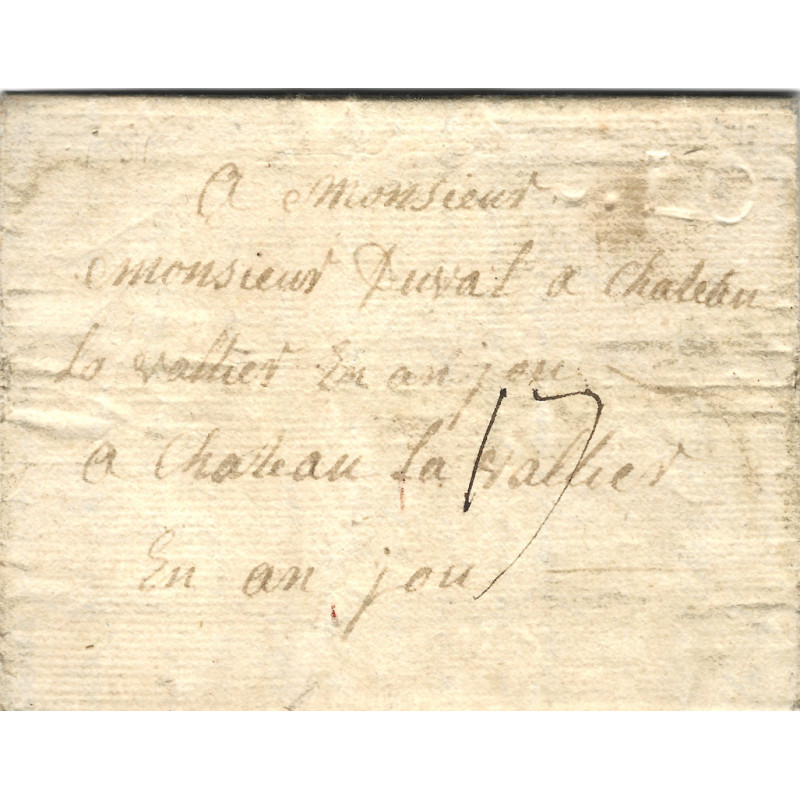 A Monsieur
monsieur Duval a Chateau
La vallier En an jou
a Chateau La vallier
17
En an jou